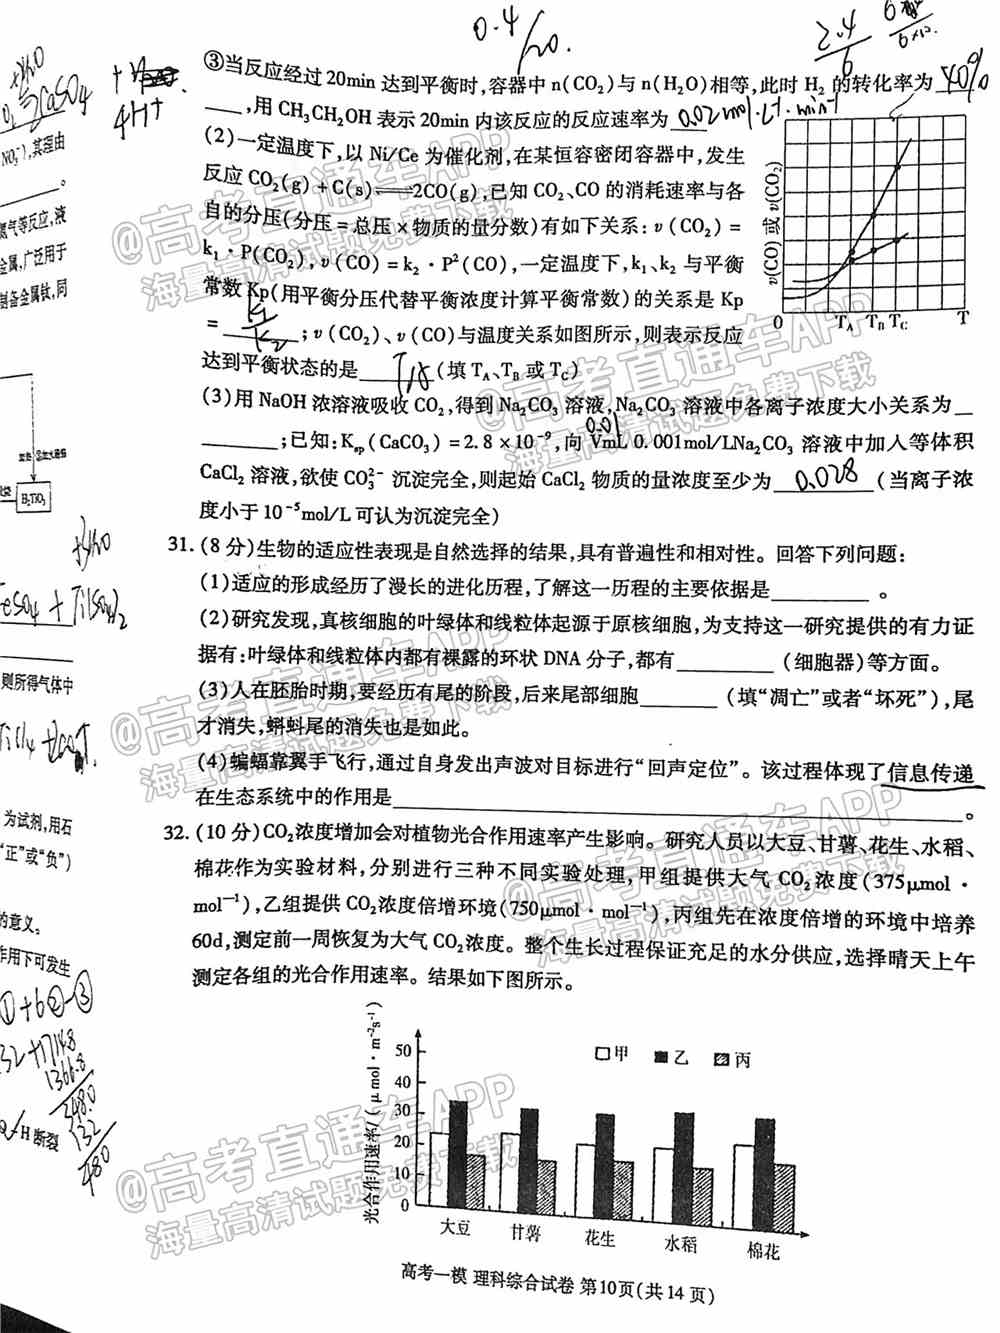 0.4/20.
2.4/6
③当反应经过20min 达到平衡时,容器中 n(CO₂)与 n(H₂O)相等,此时 H₂ 的转化率为 40%
____,用 CH₃CH₂OH 表示 20min 内该反应的反应速率为 0.02mol·L⁻¹·min⁻¹
(2)一定温度下,以 Ni/Ce 为催化剂,在某恒容密闭容器中,发生
反应 CO₂(g)+C(s)⇌2CO(g),已知 CO₂、CO 的消耗速率与各
自的分压(分压=总压×物质的量分数)有如下关系:v(CO₂)=
k₁·P(CO₂),v(CO)=k₂·P²(CO),一定温度下,k₁、k₂ 与平衡
常数 Kp(用平衡分压代替平衡浓度计算平衡常数)的关系是 Kp
= k₁/k₂ ;v(CO₂)、v(CO)与温度关系如图所示,则表示反应
达到平衡状态的是 TA (填 T_A、T_B 或 T_C)
v(CO)或 v(CO₂)
0 T_A T_B T_C T
(3)用 NaOH 浓溶液吸收 CO₂,得到 Na₂CO₃ 溶液,Na₂CO₃ 溶液中各离子浓度大小关系为__
________;已知:K_sp(CaCO₃)=2.8×10⁻⁹,向 VmL 0.001mol/LNa₂CO₃ 溶液中加入等体积
0.01
CaCl₂ 溶液,欲使 CO₃²⁻ 沉淀完全,则起始 CaCl₂ 物质的量浓度至少为 0.028 (当离子浓
度小于 10⁻⁵mol/L 可认为沉淀完全)
31.(8 分)生物的适应性表现是自然选择的结果,具有普遍性和相对性。回答下列问题:
(1)适应的形成经历了漫长的进化历程,了解这一历程的主要依据是__________。
(2)研究发现,真核细胞的叶绿体和线粒体起源于原核细胞,为支持这一研究提供的有力证
据有:叶绿体和线粒体内都有裸露的环状 DNA 分子,都有__________(细胞器)等方面。
(3)人在胚胎时期,要经历有尾的阶段,后来尾部细胞________(填“凋亡”或者“坏死”),尾
才消失,蝌蚪尾的消失也是如此。
(4)蝙蝠靠翼手飞行,通过自身发出声波对目标进行“回声定位”。该过程体现了信息传递
在生态系统中的作用是____________________。
32.(10 分)CO₂浓度增加会对植物光合作用速率产生影响。研究人员以大豆、甘薯、花生、水稻、
棉花作为实验材料,分别进行三种不同实验处理,甲组提供大气 CO₂浓度(375μmol·
mol⁻¹),乙组提供 CO₂浓度倍增环境(750μmol·mol⁻¹),丙组先在浓度倍增的环境中培养
60d,测定前一周恢复为大气 CO₂浓度。整个生长过程保证充足的水分供应,选择晴天上午
测定各组的光合作用速率。结果如下图所示。
光合作用速率/(μmol·m⁻²s⁻¹)
50
40
30
20
10
0
甲 乙 丙
大豆 甘薯 花生 水稻 棉花
高考一模 理科综合试卷 第10页(共14页)
NO₃⁻),其理由
氮气等反应,液
金属,广泛用于
制备金属钛,同
H₂TiO₃
则所得气体中
为试剂,用石
“正”或“负”)
的意义。
作用下可发生
①+6②-③
1366.8
248.0
132
480
H 断裂
@高考直通车APP
海量高清试题免费下载
@高考直通车APP
海量高清试题免费下载
@高考直通车APP
海量高清试题免费下载
@高考直通车APP
海量高清试题免费下载
@高考直通车APP
海量高清试题免费下载